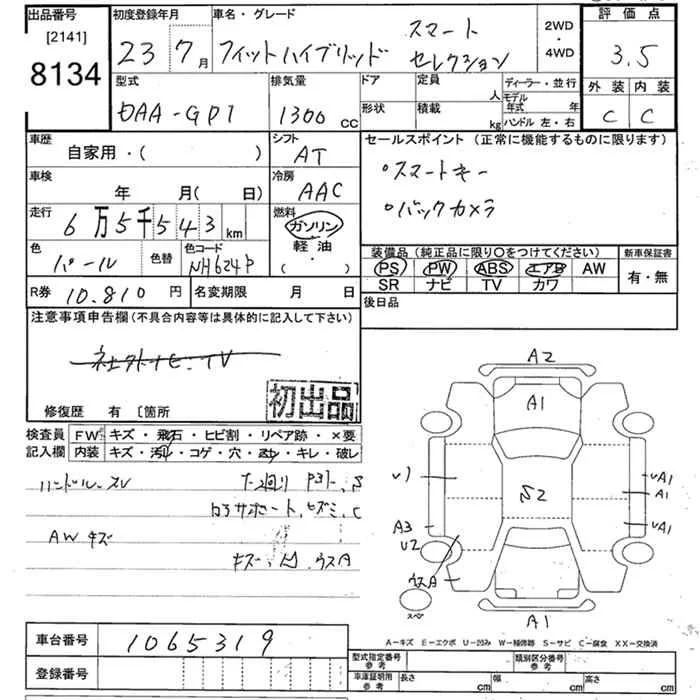 出品番号 初度登録年月 車名・グレード 2WD・4WD 評価点
[2141]
8134
23 7月 フィットハイブリッド スマートセレクション 3.5
型式 排気量 ドア 定員 人 ディーラー・並行 外装 内装
DAA-GP1 1300 cc 形状 積載 kg モデル年式 年 ハンドル 左・右 C C
車歴 自家用・( ) シフト AT セールスポイント (正常に機能するものに限ります)
車検 年 月( 日) 冷房 AAC ・スマートキー
走行 6万5千543 km 燃料 ガソリン 軽油 ・バックカメラ
色 パール 色替 色コード NH624P
装備品 (純正品に限り〇をつけてください) 新車保証書
PS PW ABS エアB AW 有・無
SR ナビ TV カワ
R券 10.810 円 名変期限 月 日 後日品
注意事項申告欄 (不具合内容等は具体的に記入して下さい)
初出品
修復歴 有 [箇所
検査員 FW キズ・飛石・ヒビ割・リペア跡・×要
記入欄 内装 キズ・汚れ・コゲ・穴・キレ・破レ
ハンドルスレ
AWキズ
A2
A1
U1
S2
A1
A1
A3
U2
A1
ウスA
スペア
A1
A-キズ E-エクボ U-凹み W-補修跡 S-サビ C-腐食 XX-交換済
車台番号 1065319
登録番号
型式指定番号 参考 類別区分番号 参考
車庫証明用 参考 長さ cm 幅 cm 高さ cm